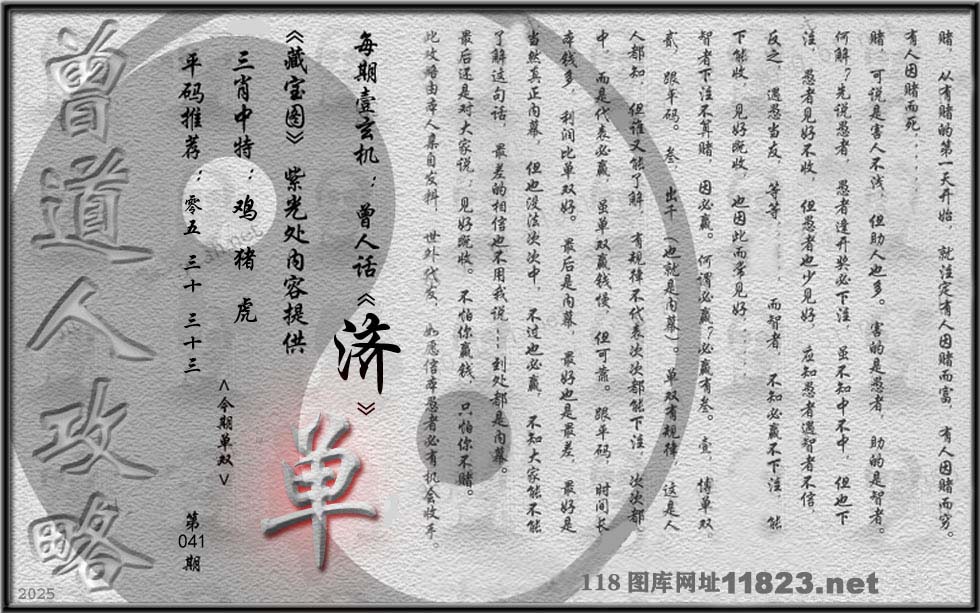 赌，从有赌的第一天开始，就注定有人因赌而富，有人因赌而穷。
有人因赌而死......
赌，可说是害人不浅，但助人也多。害的是愚者，助的是智者。
何解？先说愚者，愚者逢开奖必下注，虽不知中不中，但也下
注，愚者见好不收，但愚者也少见好，应知愚者遇智者不信，
反之，遇愁当友，等等......而智者，不知必赢不下注，能
下能收，见好既收，也因此而常见好......
智者下注不算赌，因必赢。何谓必赢？必赢有叁。壹，博单双，
贰，跟平码。叁，出千（也就是内幕）。单双有规律，这是人
人都知，但谁又能了解，有规律不代表次次都能下注，次次都
中，而是代表必赢，虽单双赢钱慢，但可靠。跟平码，时间长
本钱多，利润比单双好。最后是内幕，最好也是最差，最好是
当然真正内幕，但也没法次次中，不过也必赢，不知大家能不能
了解这句话，最差的相信也不用我说......到处都是内幕。
最后还是对大家说：见好既收。不怕你赢钱，只怕你不赌。
此攻略由本人集自发料，世外代友，如愿信本愚者必有机会收手。
每期壹玄机：曾人话《济》
《藏宝图》紫光处内容提供
单
三肖中特：鸡 猪 虎
<今期单双>
平码推荐：零五 三十 三十三
第041期
曾道人攻略
2025
118 图库网址11823.net